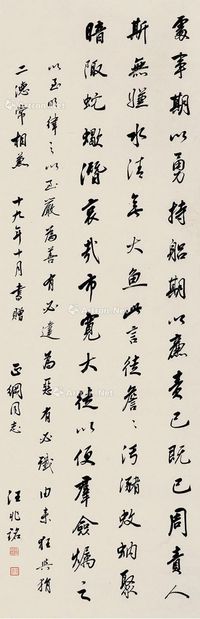 處事期以勇持躬期以廉責己既已周責人
斯無嫌水清無大魚此言徒詹詹污瀦蚊蚋聚
暗陬蚖蠍潛哀哉市寬大徒以便羣憸燭之
以至明律之以至嚴為善有必達為惡有必殲由來狂與狷
二德常相兼 十九年十月書贈 正綱同志 汪兆銘